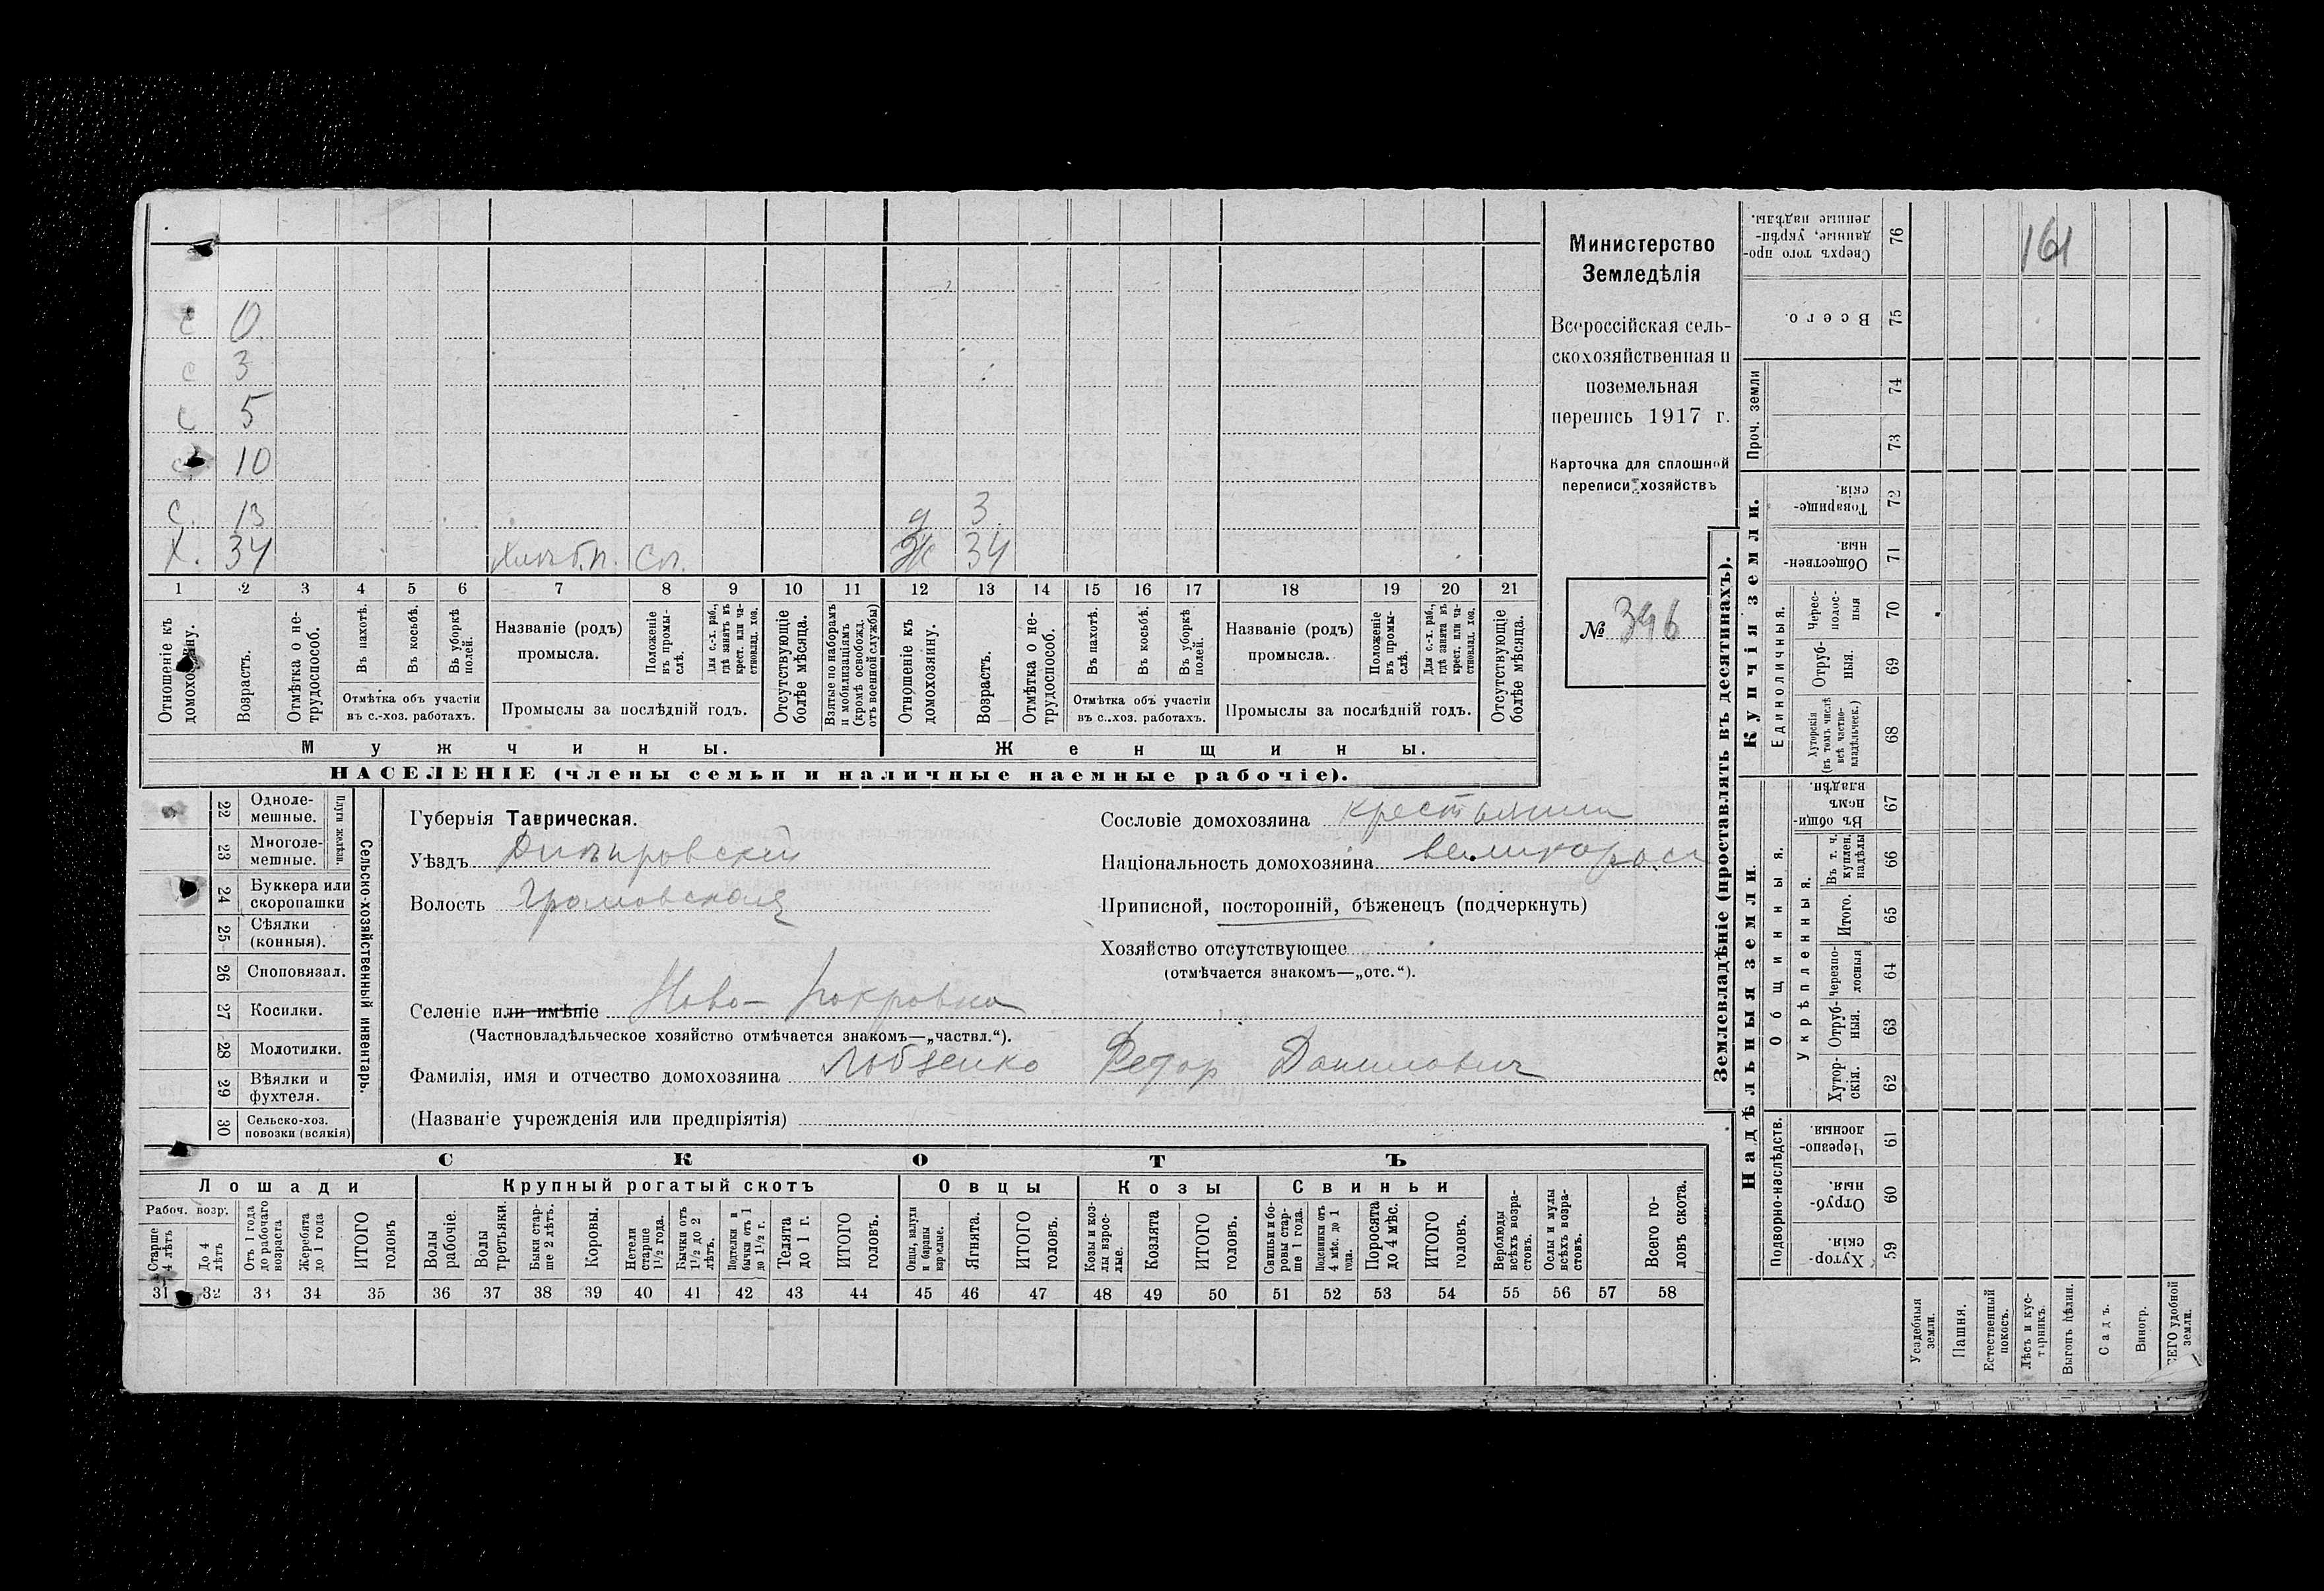 161
С 0
С 3
С 5
С 10
С. 13 д 3
Х. 34 Сп. Ж 34
1 2 3 4 5 6 7 8 9 10 11 12 13 14 15 16 17 18 19 20 21
Отношеніе къ домохозяину.
Возрастъ.
Отмѣтка о не-
трудоспособ.
Въ пахотѣ.
Въ косьбѣ.
Въ уборкѣ
полей.
Отмѣтка объ участіи
въ с.-хоз. работахъ.
Названіе (родъ)
промысла.
Положеніе
въ промы-
слѣ.
Для с.-х. раб.,
гдѣ занятъ въ
крест. или ча-
стновлад. хоз.
Промыслы за послѣдній годъ.
Отсутствующіе
болѣе мѣсяца.
Взятые по наборамъ
и мобилизаціямъ
(кромѣ освобожд.
отъ военной службы)
Отношеніе къ
домохозяину.
Возрастъ.
Отмѣтка о не-
трудоспособ.
Въ пахотѣ.
Въ косьбѣ.
Въ уборкѣ
полей.
Отмѣтка объ участіи
въ с.-хоз. работахъ.
Названіе (родъ)
промысла.
Положеніе
въ промы-
слѣ.
Для с.-х. раб.,
гдѣ занята въ
крест. или ча-
стновлад. хоз.
Промыслы за послѣдній годъ.
Отсутствующіе
болѣе мѣсяца.
Мужчины. Женщины.
НАСЕЛЕНІЕ (члены семьи и наличные наемные рабочіе).
Министерство
Земледѣлія
Всероссійская сель-
скохозяйственная и
поземельная
перепись 1917 г.
Карточка для сплошной
переписи хозяйствъ
№ 396
22 Одноле-
мешные.
23 Многоле-
мешные.
Плуги желѣзн.
24 Буккера или
скоропашки
25 Сѣялки
(конныя).
26 Сноповязал.
27 Косилки.
28 Молотилки.
29 Вѣялки и
фухтеля.
30 Сельско-хоз.
повозки (всякія)
Сельско-хозяйственный инвентарь.
Губернія Таврическая.
Уѣздъ Днѣпровскій
Волость Громовская
Сословіе домохозяина крестьянин
Національность домохозяина великоросс
Приписной, посторонній, бѣженецъ (подчеркнуть)
Хозяйство отсутствующее
(отмѣчается знакомъ—„отс.“).
Селеніе или имѣніе Ново-Покровка
(Частновладѣльческое хозяйство отмѣчается знакомъ—„частвл.“).
Фамилія, имя и отчество домохозяина Лобзенко Федор Данилович
(Названіе учрежденія или предпріятія)
СКОТЪ
Лошади Крупный рогатый скотъ Овцы Козы Свиньи
Рабоч. возр.
Старше
4 лѣтъ
До 4
лѣтъ
Отъ 1 года
до рабочаго
возраста
Жеребята
до 1 года
ИТОГО
головъ
Волы
рабочіе.
Волы
третьяки.
Быки стар-
ше 2 лѣтъ.
Коровы.
Нетели
старше
1½ года.
Бычки отъ
1½ до 2
лѣтъ.
Подтелки и
бычки отъ 1
до 1½ г.
Телята
до 1 г.
ИТОГО
головъ.
Овцы, валухи
и бараны
взрослые.
Ягнята.
ИТОГО
головъ.
Козы и коз-
лы взрос-
лые.
Козлята
ИТОГО
головъ.
Свиньи и бо-
ровы стар-
ше 1 года.
Подсвинки отъ
4 мѣс. до 1
года.
Поросята
до 4 мѣс.
ИТОГО
головъ.
Верблюды
всѣхъ возра-
стовъ.
Ослы и мулы
всѣхъ возра-
стовъ.
Всего го-
ловъ скота.
31 32 33 34 35 36 37 38 39 40 41 42 43 44 45 46 47 48 49 50 51 52 53 54 55 56 57 58
Землевладѣніе (проставлять въ десятинахъ).
Надѣльныя земли. Купчія земли.
Подворно-наслѣдств.
Общинныя.
Укрѣпленныя.
Единоличныя.
Проч. земли
Хутор-
скія. 59
Отруб-
ныя. 60
Черезпо-
лосныя 61
Хутор-
скія. 62
Отруб-
ныя. 63
Черезпо-
лосныя 64
Итого. 65
Въ т. ч.
куплен.
надѣлы 66
Въ общи-
номъ
владѣн. 67
Хуторскія
(въ томъ числѣ
всѣ частно-
владѣльческ.) 68
Отруб-
ныя. 69
Черес-
полос-
ныя 70
Обществен-
ныя. 71
Товарище-
скія. 72
73
74
Всего. 75
Сверхъ того про-
данные, укрѣп-
ленные надѣлы. 76
Усадебныя
земли.
Пашня.
Естественный
покосъ.
Лѣсъ и кус-
тарникъ.
Выгонъ цѣлин.
Садъ.
Виногр.
ВСЕГО удобной
земли.